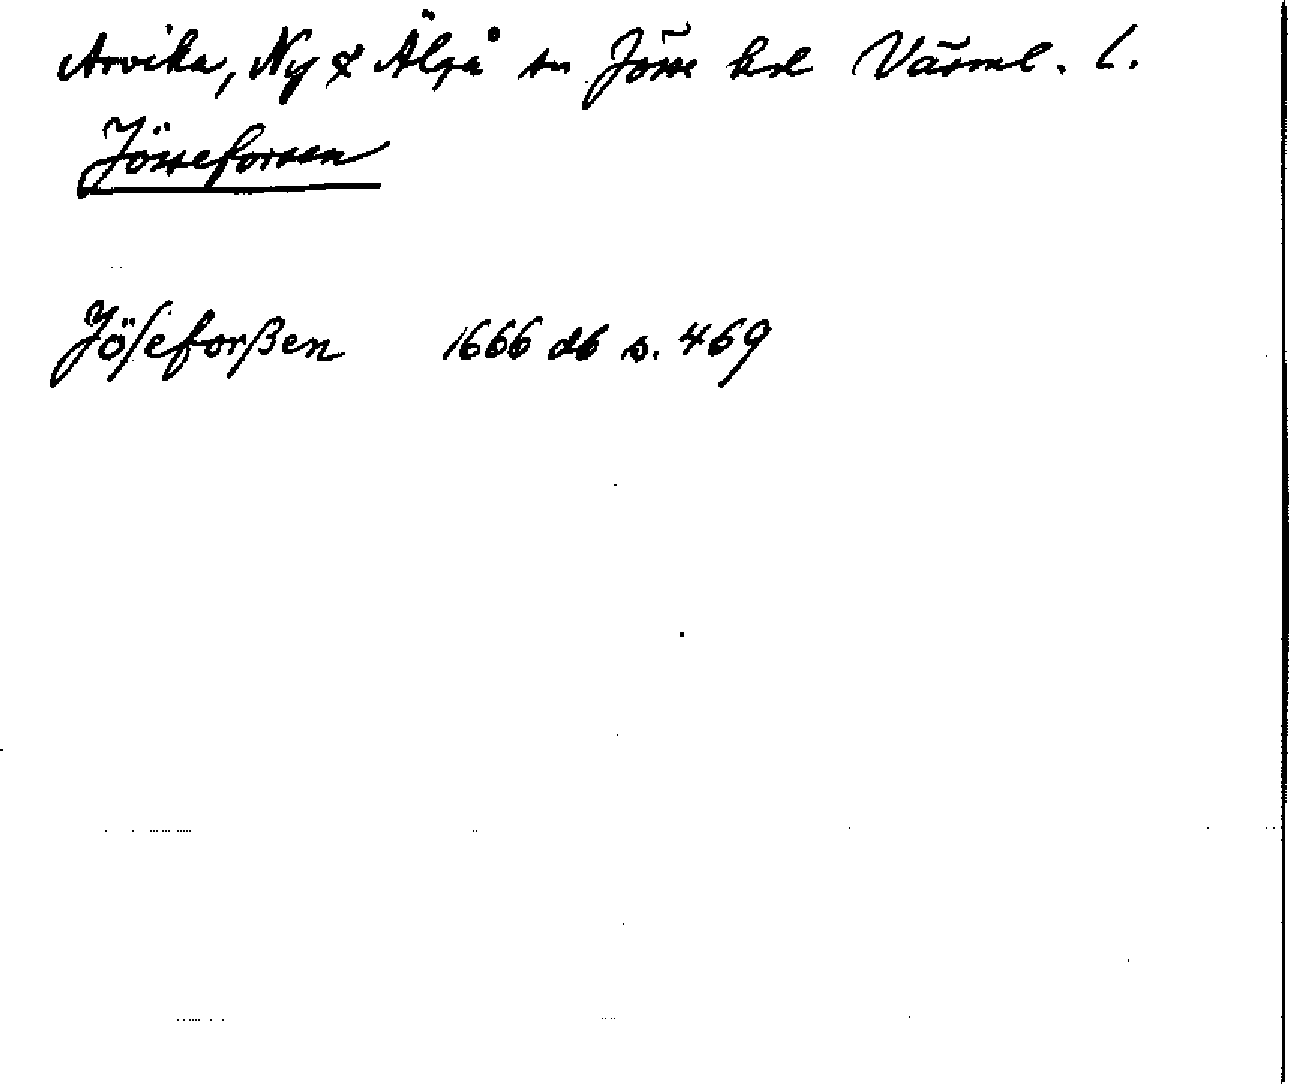 Arvika, Ny & Älgå sn Jösse hrd Värml. l.
Jösseforsen
Jöſeforßen 1666 db s. 469